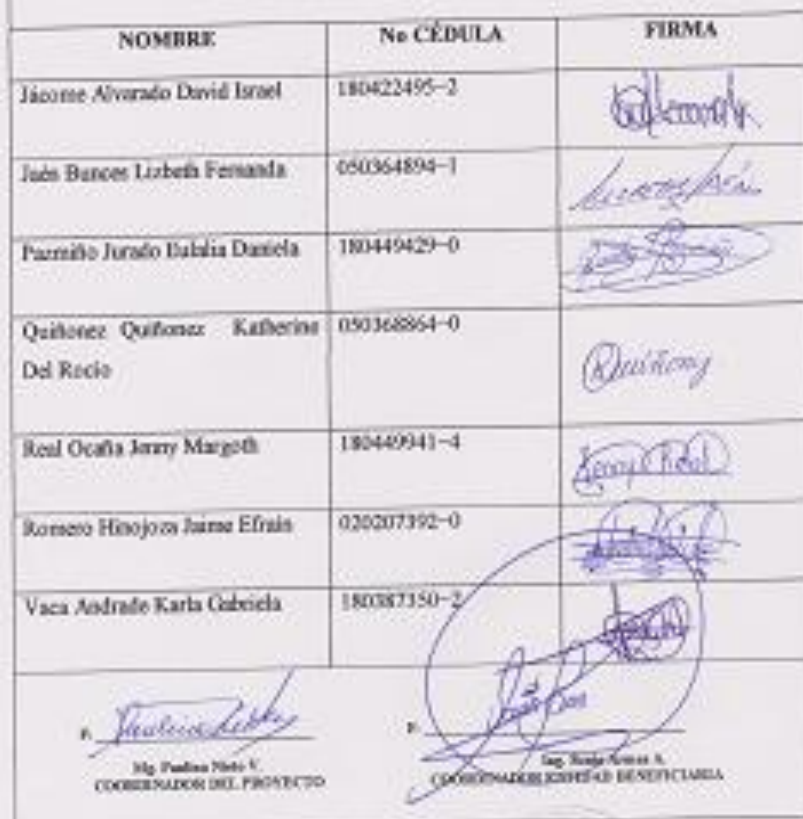 NOMBRE No CÉDULA FIRMA
Jácome Alvarado David Israel 180422495-2
Jaén Bunces Lizbeth Fernanda 050364894-1
Pazmiño Jurado Eulalia Daniela 180449429-0
Quiñonez Quiñonez Katherine 050368864-0
Del Rocío
Quiñonez
Real Ocaña Jenny Margoth 180449941-4
Romero Hinojoza Jaime Efraín 020207392-0
Vaca Andrade Karla Gabriela 180387350-2
F. F.
Mg. Paulina Nieto V. Ing.
COORDINADOR DEL PROYECTO COORDINADOR ENTIDAD BENEFICIARIA